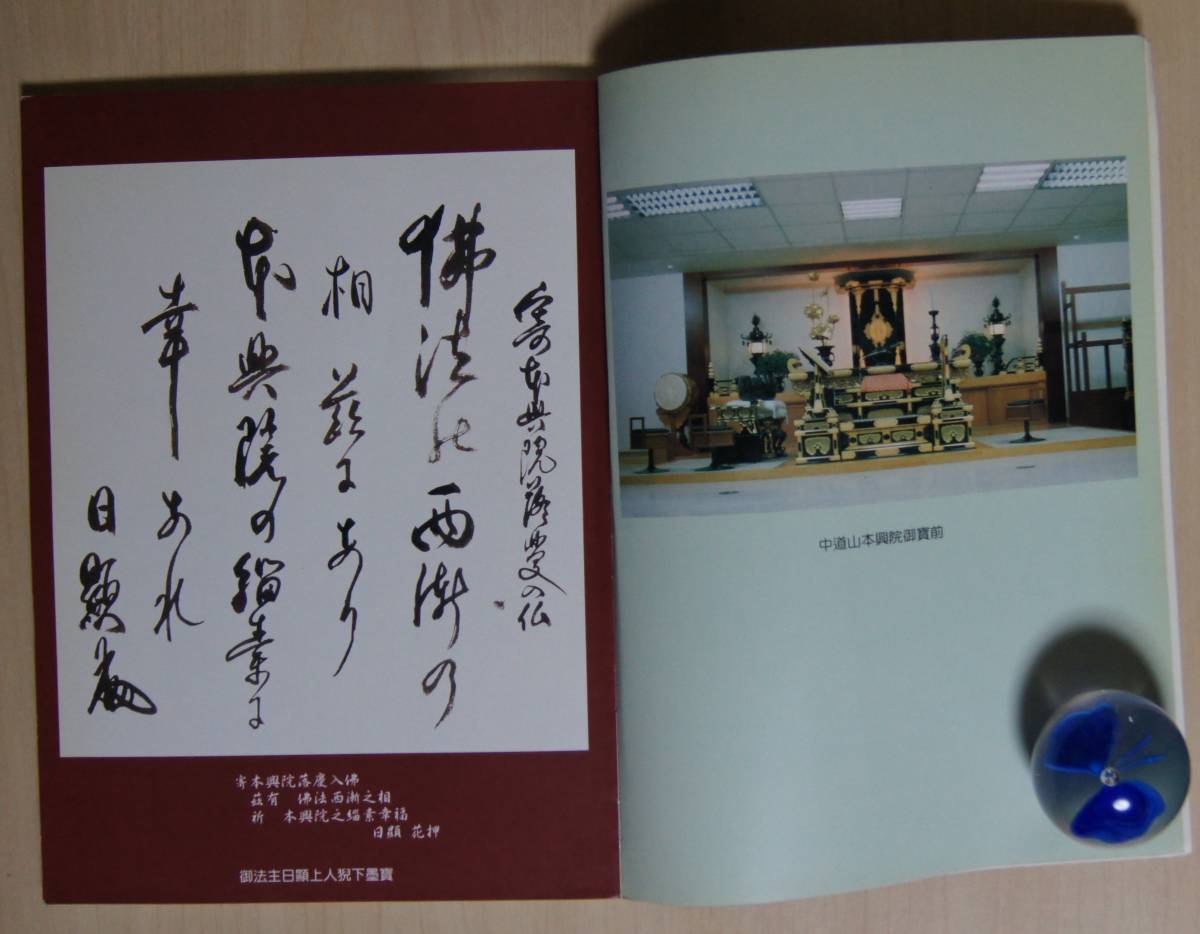 寄本興院落慶入仏
佛法の西漸の
相 茲にあり
本興院の緇素に
幸あれ
日顯
寄本興院落慶入佛
茲有　佛法西漸之相
祈　本興院之緇素幸福
日顯 花押
御法主日顯上人猊下墨寶
中道山本興院御寶前